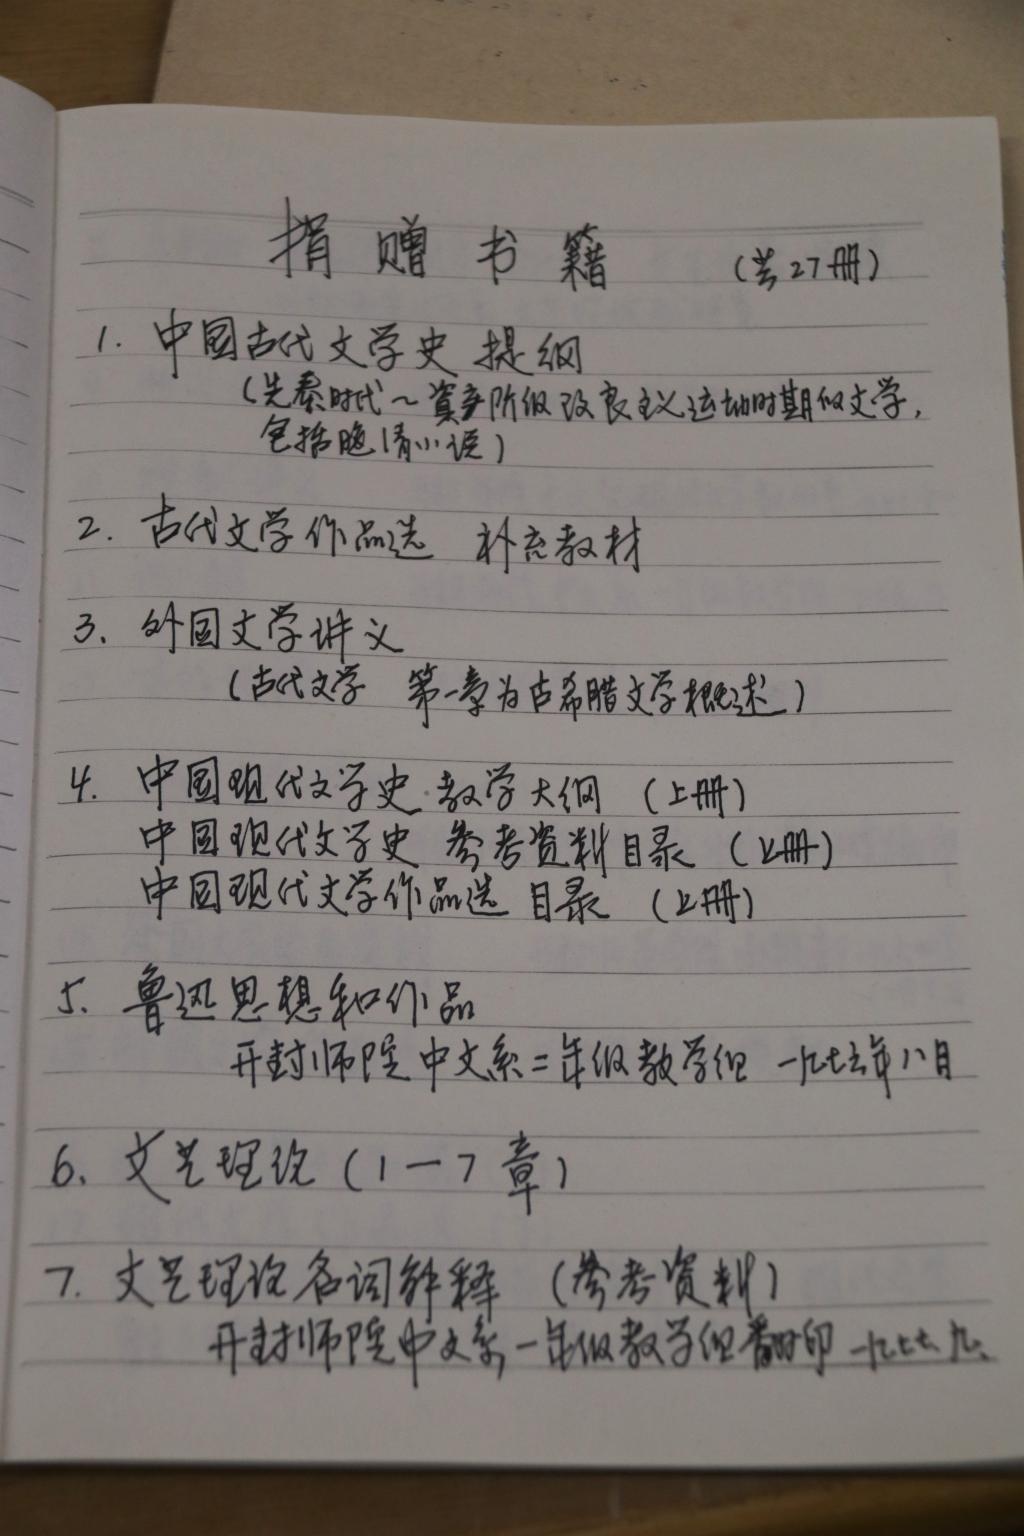 捐赠书籍 (共27册)
1. 中国古代文学史 提纲
(先秦时代~资产阶级改良主义运动时期的文学,
包括晚清小说)
2. 古代文学作品选 补充教材
3. 外国文学讲义
(古代文学 第一章为古希腊文学概述)
4. 中国现代文学史 教学大纲 (上册)
中国现代文学史 参考资料目录 (上册)
中国现代文学作品选 目录 (上册)
5. 鲁迅思想和作品
开封师院中文系二年级教学组 一九七六年八月
6. 文艺理论 (1一7章)
7. 文艺理论名词解释 (参考资料)
开封师院中文系一年级教学组翻印 一九七七.九.